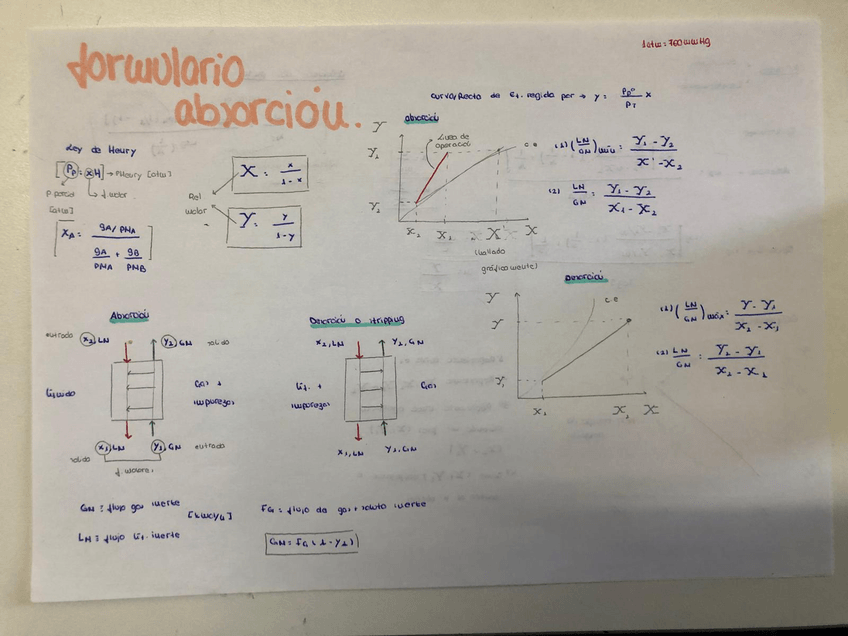 1atm = 760 mmHg
formulario
absorción.
curva/Recta de Eq. regida por → y = Pp° / PT x
Ley de Henry
[Pp = x·H] → PHenry [atm]
P. parcial
[atm]
f. molar
xA = gA/PMA / (gA/PMA + gB/PMB)
Rel
molar
X = x / 1-x
Y = y / 1-y
absorción
Y
Línea de
operación
c.e
Y1
Y2
X2 X1 X* X
(hallado
gráficamente)
(1) (LN/GN)mín = Y1 - Y2 / X* - X2
(2) LN/GN = Y1 - Y2 / X1 - X2
Desorción
Y
c.e
Y
Y1
X1 X2 X
(1) (LN/GN)máx = Y - Y1 / X2 - X1
(2) LN/GN = Y2 - Y1 / X2 - X1
Absorción
entrada x2, LN y2, GN salida
Líquido
Gas +
impurezas
salida x1, LN y1, GN entrada
f. molares
Desorción o stripping
x2, LN y2, GN
Líq. +
impurezas
Gas
x1, LN y1, GN
GN = flujo gas inerte
[kmol/h]
LN = flujo líq. inerte
FG = flujo de gas + soluto inerte
GN = FG (1 - y1)